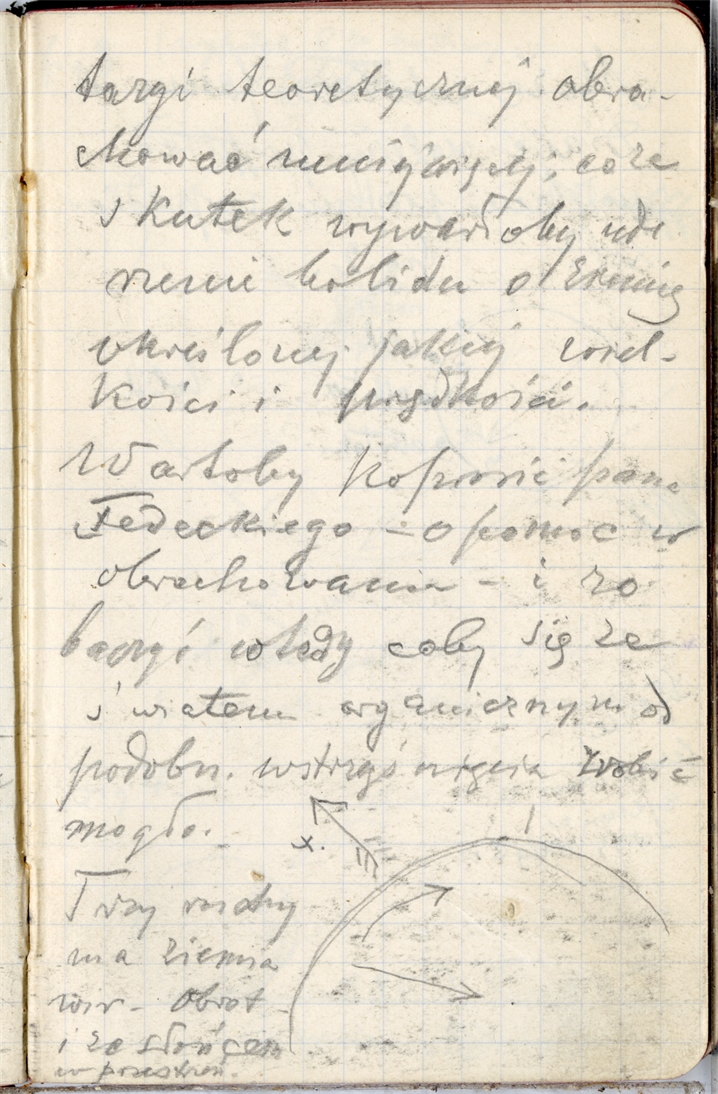 targi teoretycznej obra-
chować mniejwięcej; coza
skutek wywarłoby ude
rzenie bolidu o Ziemię
określonej jakiej wiel-
kości i prędkości.
Wartoby poprosić pana
Tedeckiego - o pomoc w
obrachowaniu - i zo
baczyć wtedy coby się ze
światem organicznym od
podobn. wstrząśnięcia zrobić
mogło.
x.
Trzy ruchy
ma ziemia
wir - obrot -
i ze słońcem
w przestrzen.